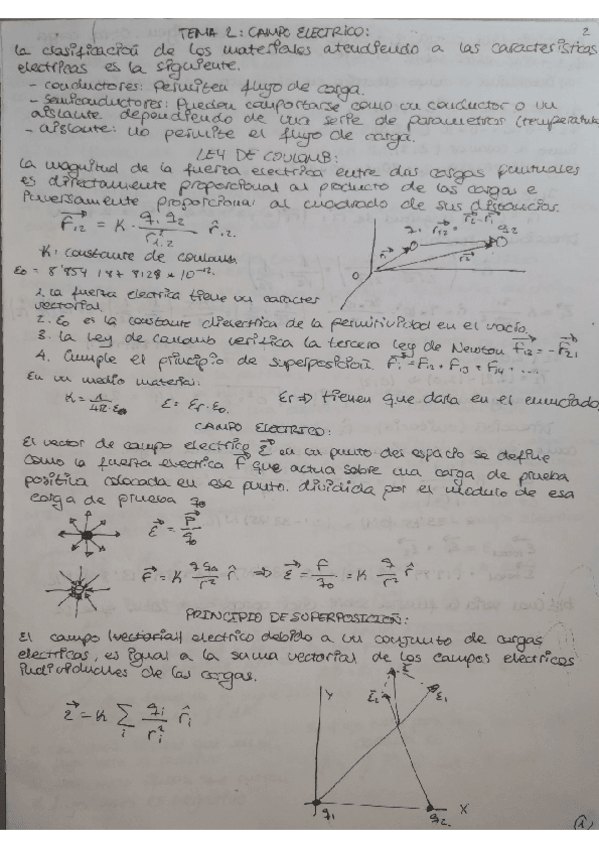 TEMA 2: CAMPO ELECTRICO: 2
La clasificación de los materiales atendiendo a las caracteristicas
electricas es la siguiente.
- conductores: Permiten flujo de carga.
- Semiconductores: Pueden comportarse como un conductor o un
aislante dependiendo de una serie de parametros (temperatura
- aislante: no permite el flujo de carga.
LEY DE COULOMB:
La magnitud de la fuerza electrica entre dos cargas puntuales
es directamente proporcional al producto de las cargas e
inversamente proporcional al cuadrado de sus distancias.
F12 = K · q1 · q2 / r²1.2 r̂1.2.
q1 r12 = r2 - r1 q2
r1 r2
O
K: constante de coulomb
ε0 = 8'854 187 8128 * 10^-12.
1. La fuerza electrica tiene un caracter
vectorial.
2. ε0 es la constante dielectrica de la permitividad en el vacio.
3. La ley de coulomb verifica la tercera ley de Newton F12 = -F21
4. Cumple el principio de superposición. Fi = F12 + F13 + F14 + ....
En un medio material:
K = 1 / 4π·ε0 ε = εr · ε0. εr ⇒ tienen que darla en el enunciado
CAMPO ELECTRICO:
El vector de campo electrico ε en un punto del espacio se define
como la fuerza electrica F que actua sobre una carga de prueba
positiva colocada en ese punto, dividida por el modulo de esa
carga de prueba q0
ε = F / q0
F = K q q0 / r² r̂ ⇒ ε = F / q0 = K q / r² r̂
PRINCIPIO DE SUPERPOSICION:
El campo (vectorial) electrico debido a un conjunto de cargas
electricas, es igual a la suma vectorial de los campos electricos
individuales de las cargas.
ε = K Σi qi / ri² r̂i
Y ε2 ε ε1
q1 q2 X
(1)